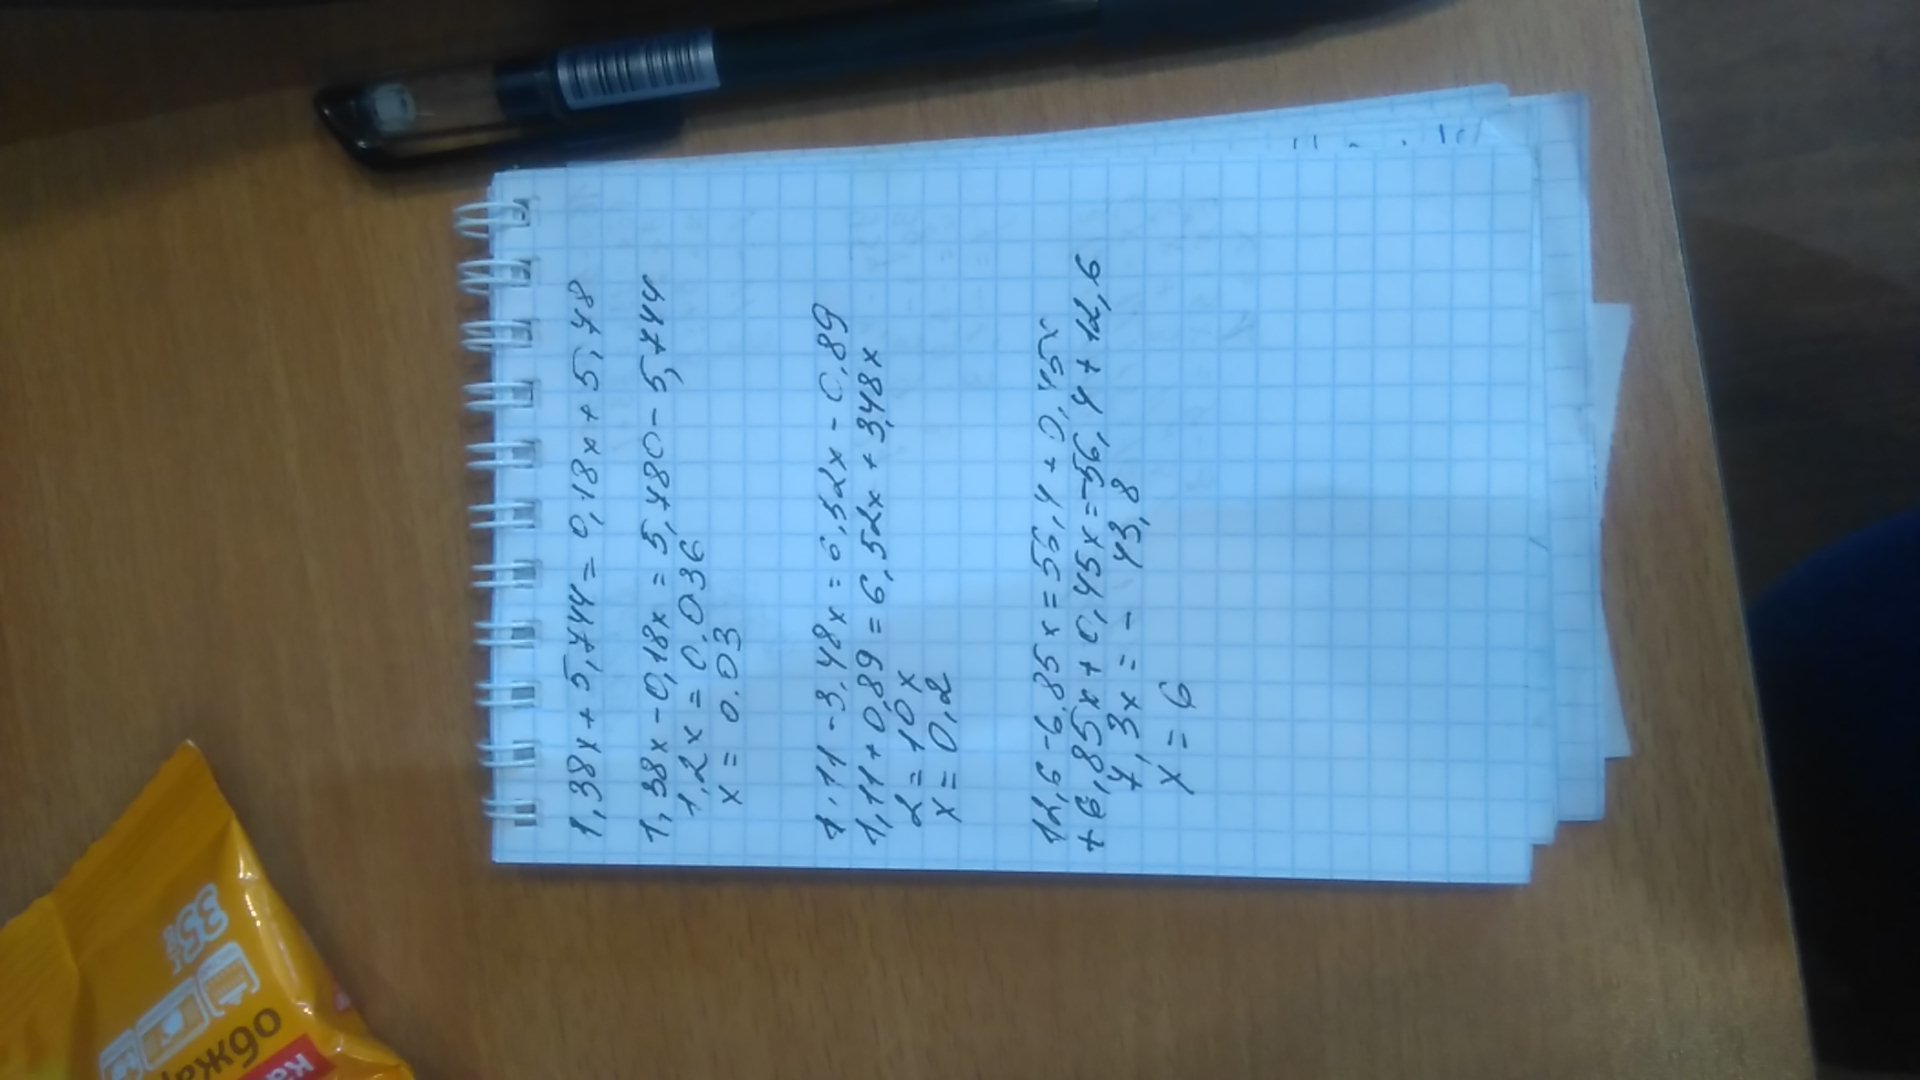 1,38x + 5,744 = 0,18x + 5,78
1,38x - 0,18x = 5,780 - 5,744
1,2x = 0,036
x = 0.03
1,11 - 3,48x = 6,52x - 0,89
1,11 + 0,89 = 6,52x + 3,48x
2 = 10x
x = 0,2
12,6 - 6,85x = 56,4 + 0,45x
+ 6,85x + 0,45x = -56,4 + 12,6
7,3x = - 43,8
x = 6
35г
обжар
ка